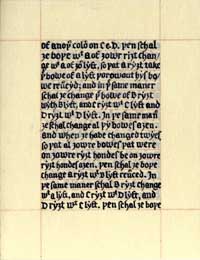 of anoþ colo on C & D. þen schal
ȝe bowe wᵗ a of ȝowr ryȝt chan-
ge wᵗ a of ȝo lyft, so þat a ryȝt take
þe bowe of a lyft þorowout hys bo
we reuced; and in þe same maner
schal ȝe change þe bowe of D ryȝt
with B lyft, and C ryȝt wᵗ C lyft and
D ryȝt wᵗ D lyft. In þe same man
ȝe schal change al þe bowes aȝen.
and when ȝe habe changed twyes
so þat al ȝowre bowes þat were
on ȝowre ryȝt hondes be on ȝowre
ryȝt hondes aȝen. þen schal ȝe bowe
change a ryȝt wᵗ D lyft reuced. In
þe same maner schal B ryȝt change
wᵗ a lyft, and C ryȝt wᵗ D lyft, and
D ryȝt wᵗ C lyft. þen schal ȝe bowe